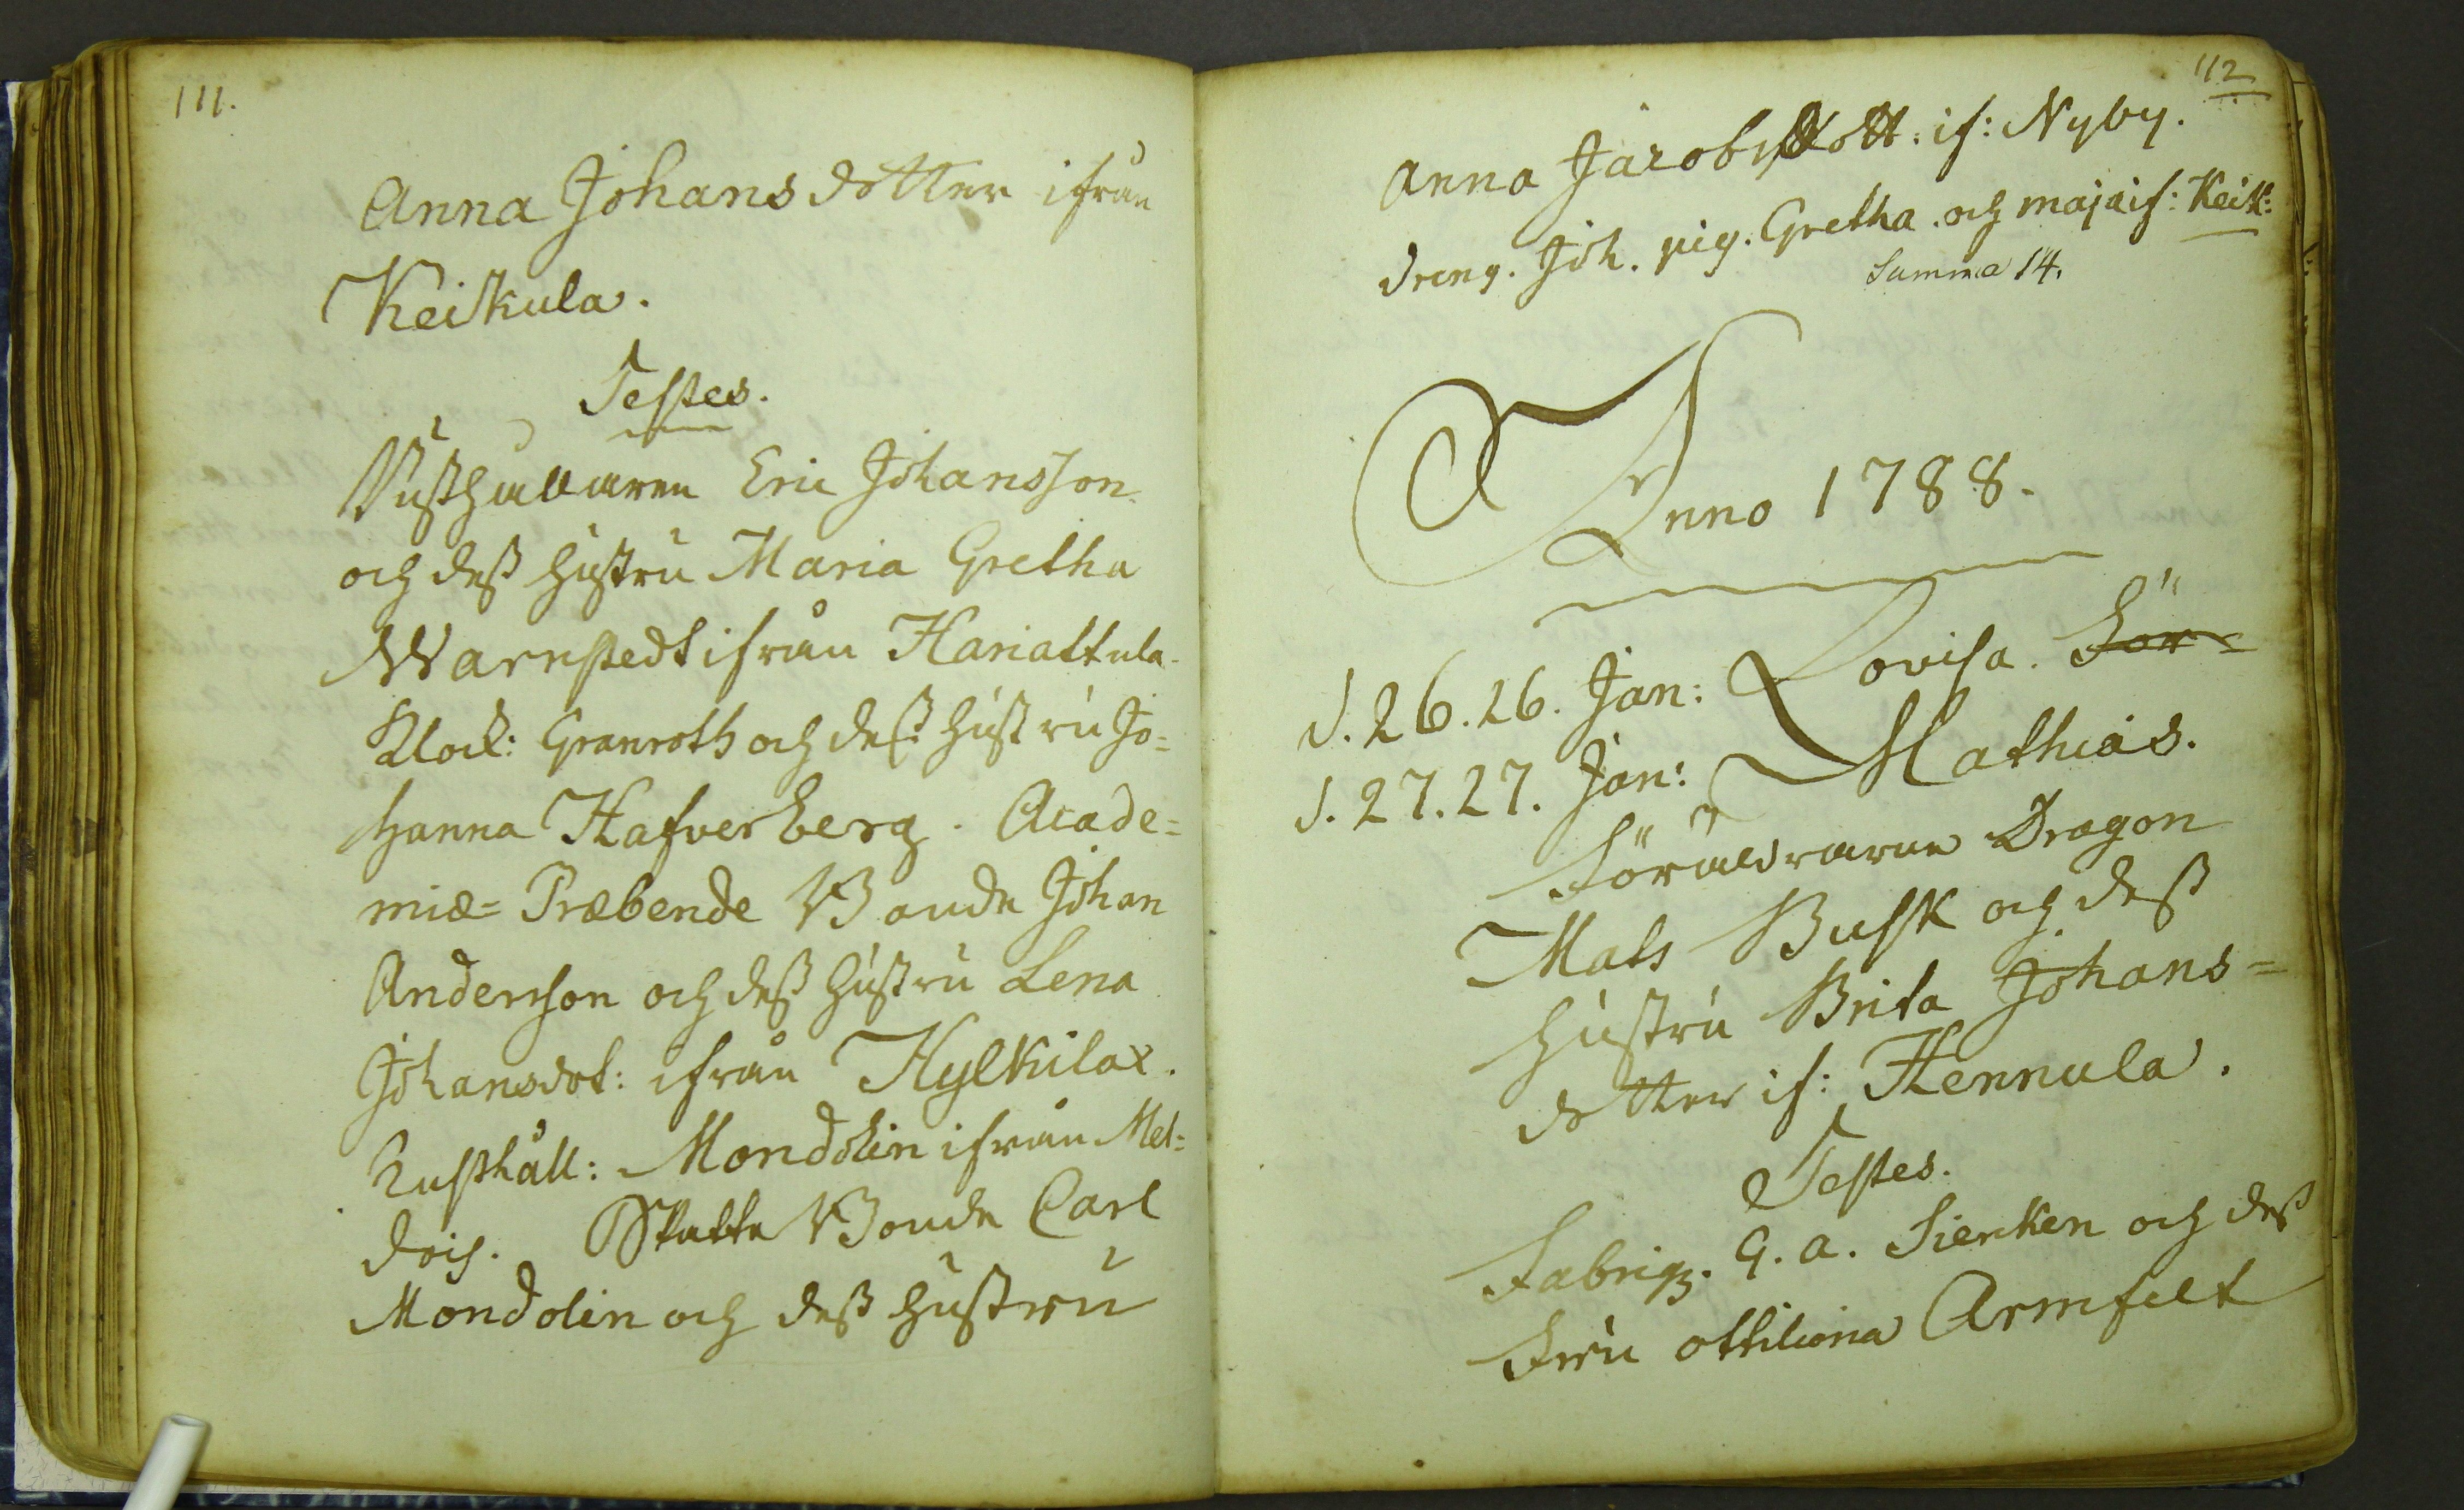 111.
Anna Johansdotter ifrån
Keikula.
Testes.
Rusthållaren Eric Johansson
och dess hustru Maria Gretha
Warnstedt ifrån Hariattula.
Klock: Granroth och dess hustru Jo=
hanna Hafverberg. Acade=
miæ= Præbende Bonde Johan
Anderson och dess hustru Lena
Johansdot: ifrån Hylkilax.
Rusthåll: Mondolin ifrån Mel=
dois. Skatte Bonde Carl
Mondolin och dess hustru
112
Anna Jacobsdott: if: Nyby.
dreng. Joh. pig. Gretha. och maja if: Keik:
Summa 14.
Anno 1788.
d. 26. 26. Jan: Lovisa. För=
d. 27. 27. Jan: Mathias.
Föräldrarne Dragon
Mats Busk och dess
hustru Brita Johans=
dotter if: Hennula.
Testes.
Fabriqz. G. A. Sierken och dess
Fru Ottiliana Armfelt